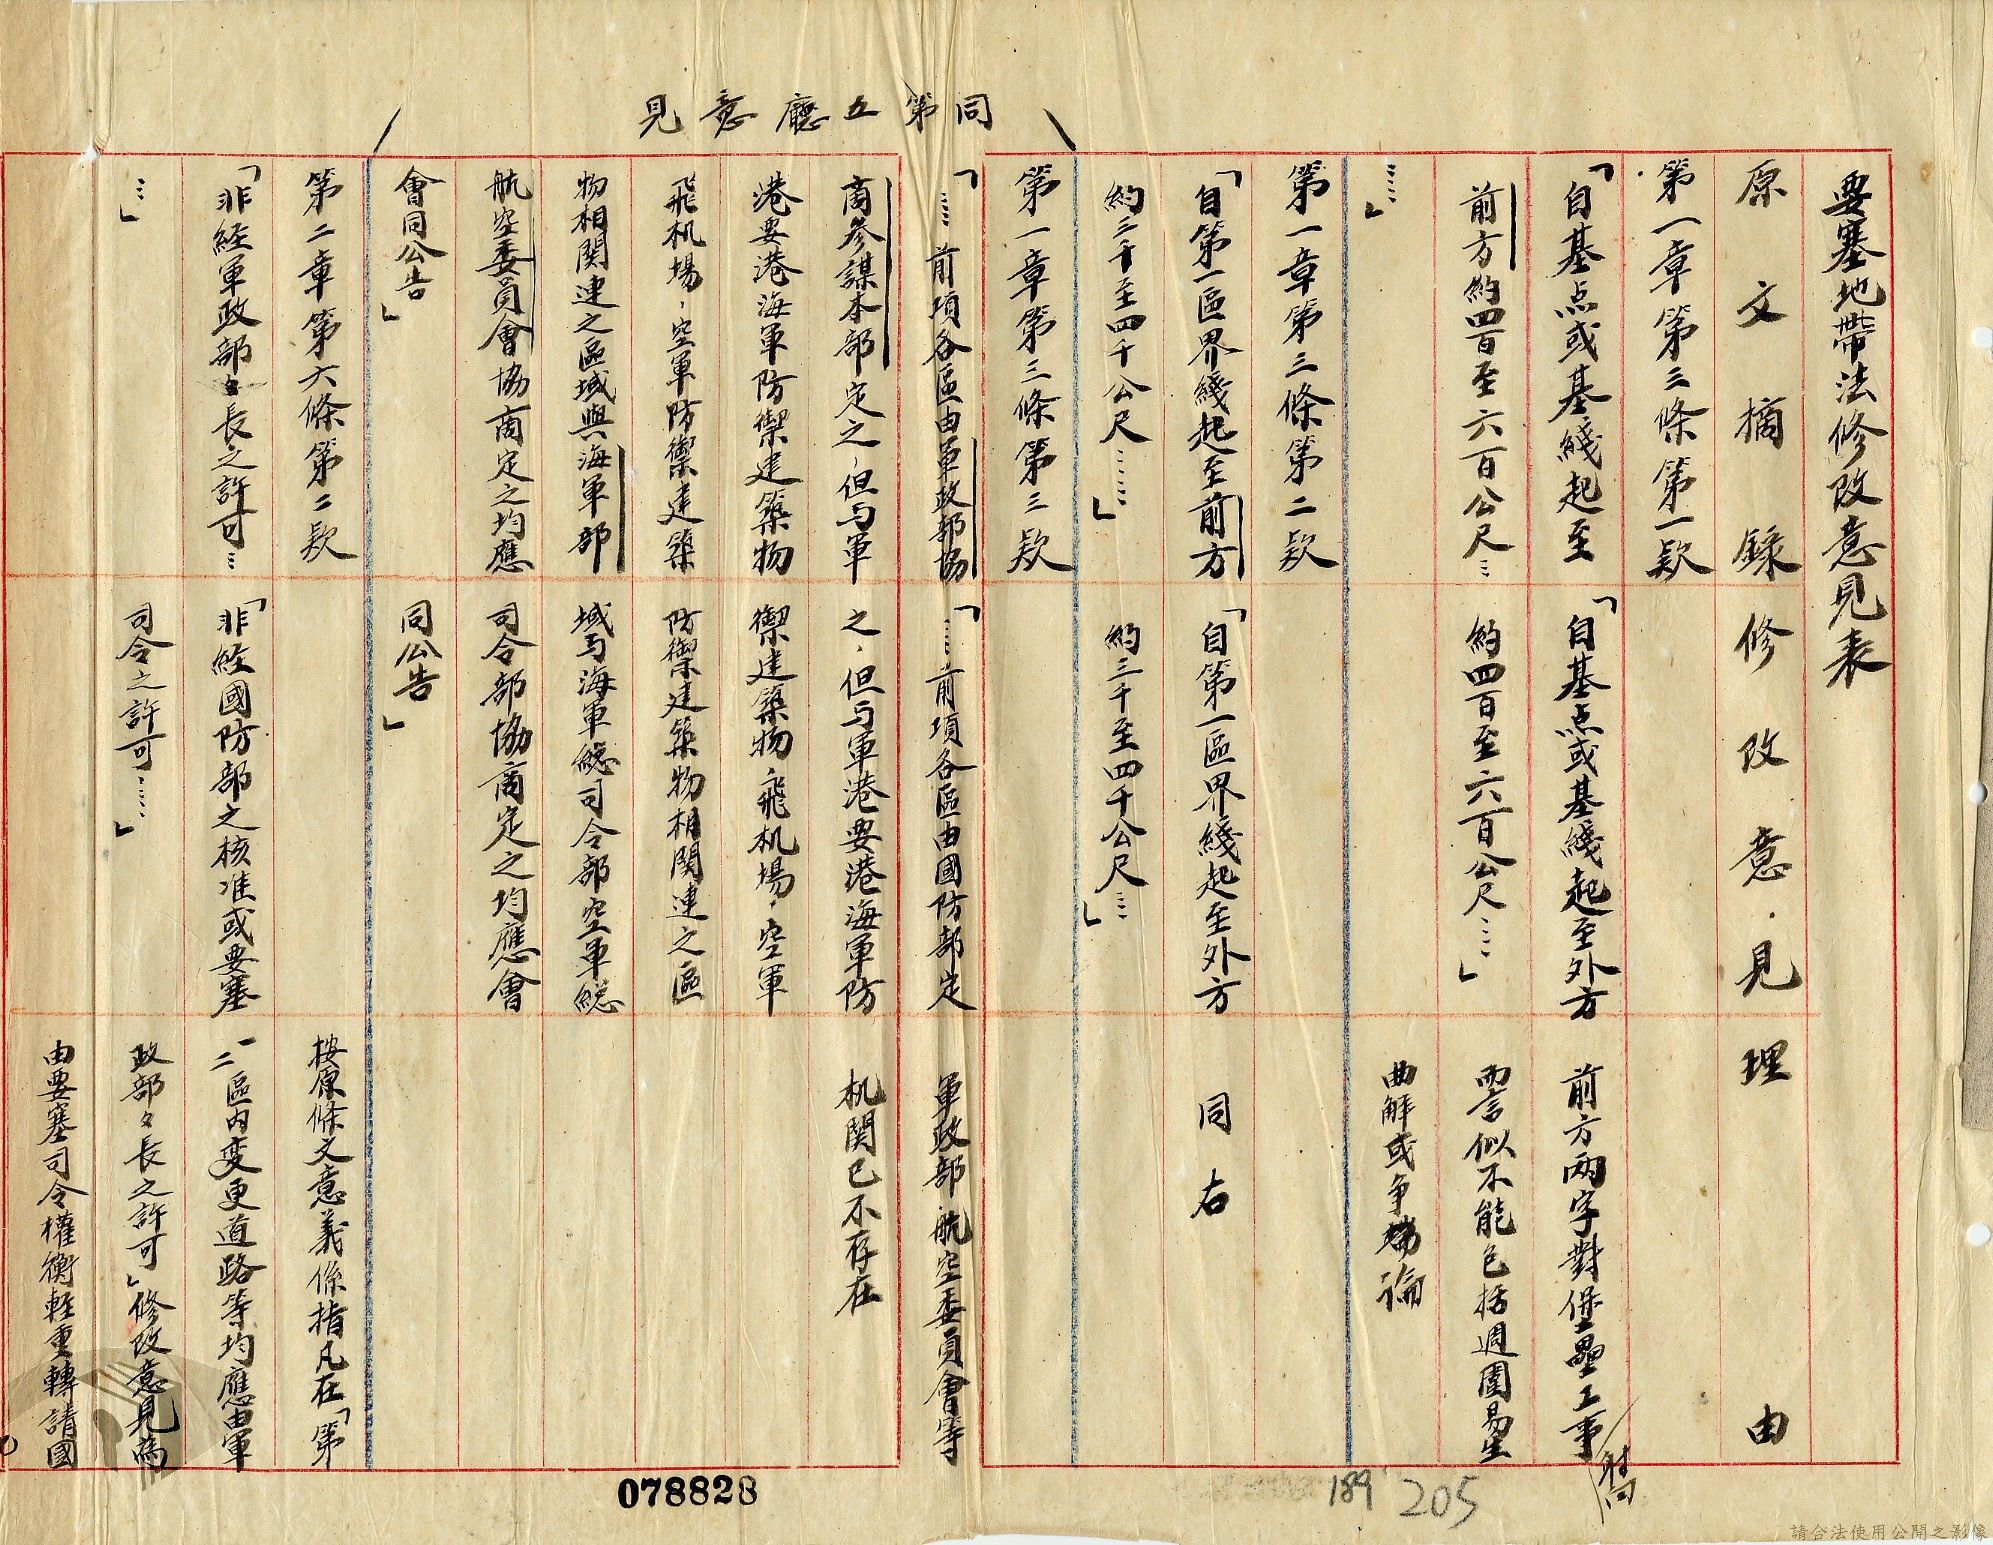 同第五廳意見
要塞地帶法修改意見表
原文摘錄
修改意見
理由
第一章第三條第一欵
「自基点或基綫起至
前方約四百至六百公尺…
……」
「自基点或基綫起至外方
約四百至六百公尺……」
前方两字對堡壘工事
而言似不能包括週圍易生
曲解或争論
第一章第三條第二欵
「自第一區界綫起至前方
約三千至四千公尺……」
「自第一區界綫起至外方
約三千至四千公尺……」
同右
第一章第三條第三欵
「……前項各區由軍政部協
商參謀本部定之,但与軍
港要港海軍防禦建築物
飛机場,空軍防禦建築
物相関連之區域與海軍部
航空委員會協商定之均應
會同公告」
「……前項各區由國防部定
之,但与軍港要港海軍防
禦建築物,飛机場,空軍
防禦建築物相関連之區
域与海軍總司令部空軍總
司令部協商定之均應會
同公告」
軍政部,航空委員會等
机関已不存在
第二章第六條第二欵
「非經軍政部々長之許可…
…」
「非經國防部之核准或要塞
司令之許可……」
按原條文意義係指凡在「第
一二區内変更道路等均應由軍
政部々長之許可」修改意見為
由要塞司令權衡輕重轉請國
078828
189
205
請合法使用公開之影像